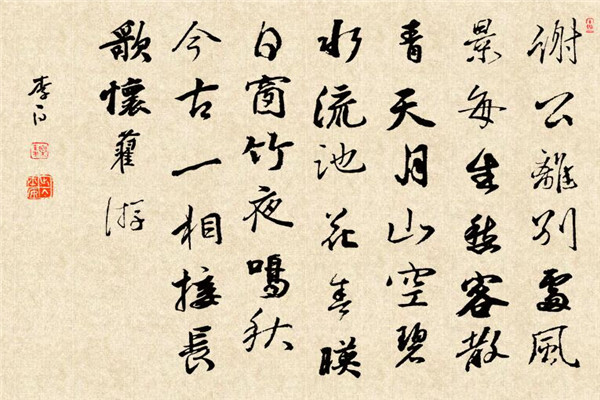 謝公離別處風
景每生愁客散
青天月山空碧
水流池花春暎
日窗竹夜鳴秋
今古一相接長
歌懷舊游
李白